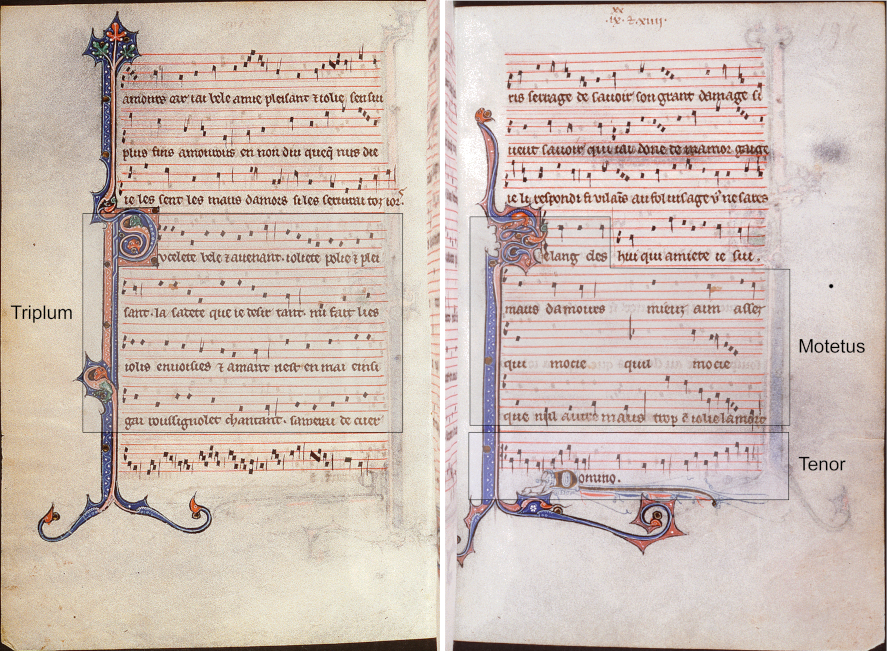 ix·⁊·xiiii·
amours car iai bele amie pleisant ⁊ iolie sen sui
plus fins amourous en non diu queq nus die
ie les sent les maus damors si les servirai toz iors
Triplum
Puelete bele ⁊ avenant. ioliete polie ⁊ plei
sant. la sadete que ie desir tant. mi fait lies
iolis envoisies ⁊ amant nest en mai einsi
gai roussignolet chantant. samerai de cuer
ris servage de savoir son grant damage si
veut savoir qui iai done de mamor gaige
ie li respondi fi vilains au fol visage ne saves
Je lang des hui qui amiete ie sui.
maus damours mieuz aim assez
qui mocie quil mocie
que nul autre maus trop ē iolie la mort
Motetus
Domino.
Tenor